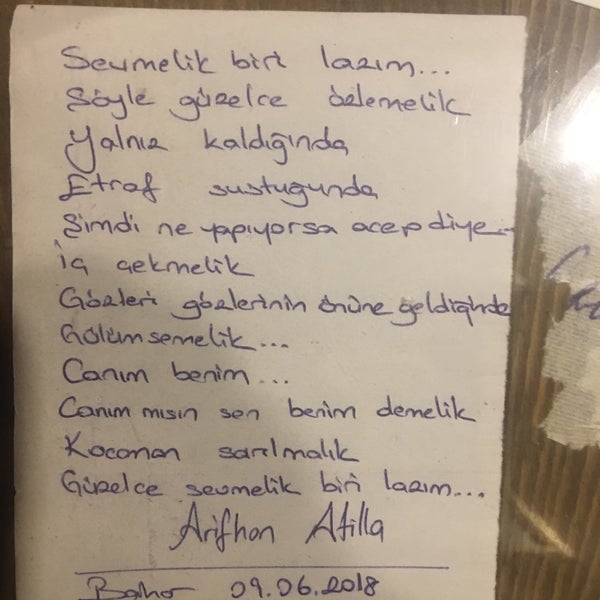 Sevmelik biri lazım...
Şöyle güzelce özlemelik
Yalnız kaldığında
Etraf sustuğunda
Şimdi ne yapıyorsa acep diye...
İç çekmelik
Gözleri gözlerinin önüne geldiğinde
Gülümsemelik...
Canım benim...
Canım mısın sen benim demelik
Kocaman sarılmalık
Güzelce sevmelik biri lazım...
Arifhan Atilla
Bahar 09.06.2018